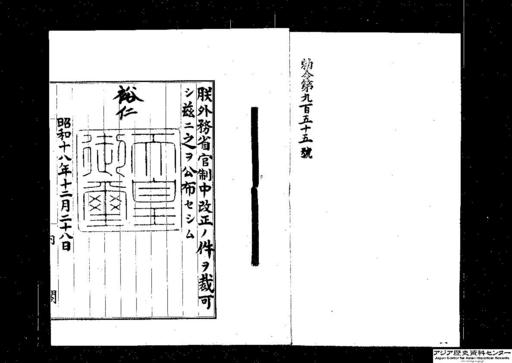 勅令第九百五十五號
朕外務省官制中改正ノ件ヲ裁可
シ茲ニ之ヲ公布セシム
裕仁
天皇
御璽
昭和十八年十二月二十八日
内閣
アジア歴史資料センター
Japan Center for Asian Historical Records